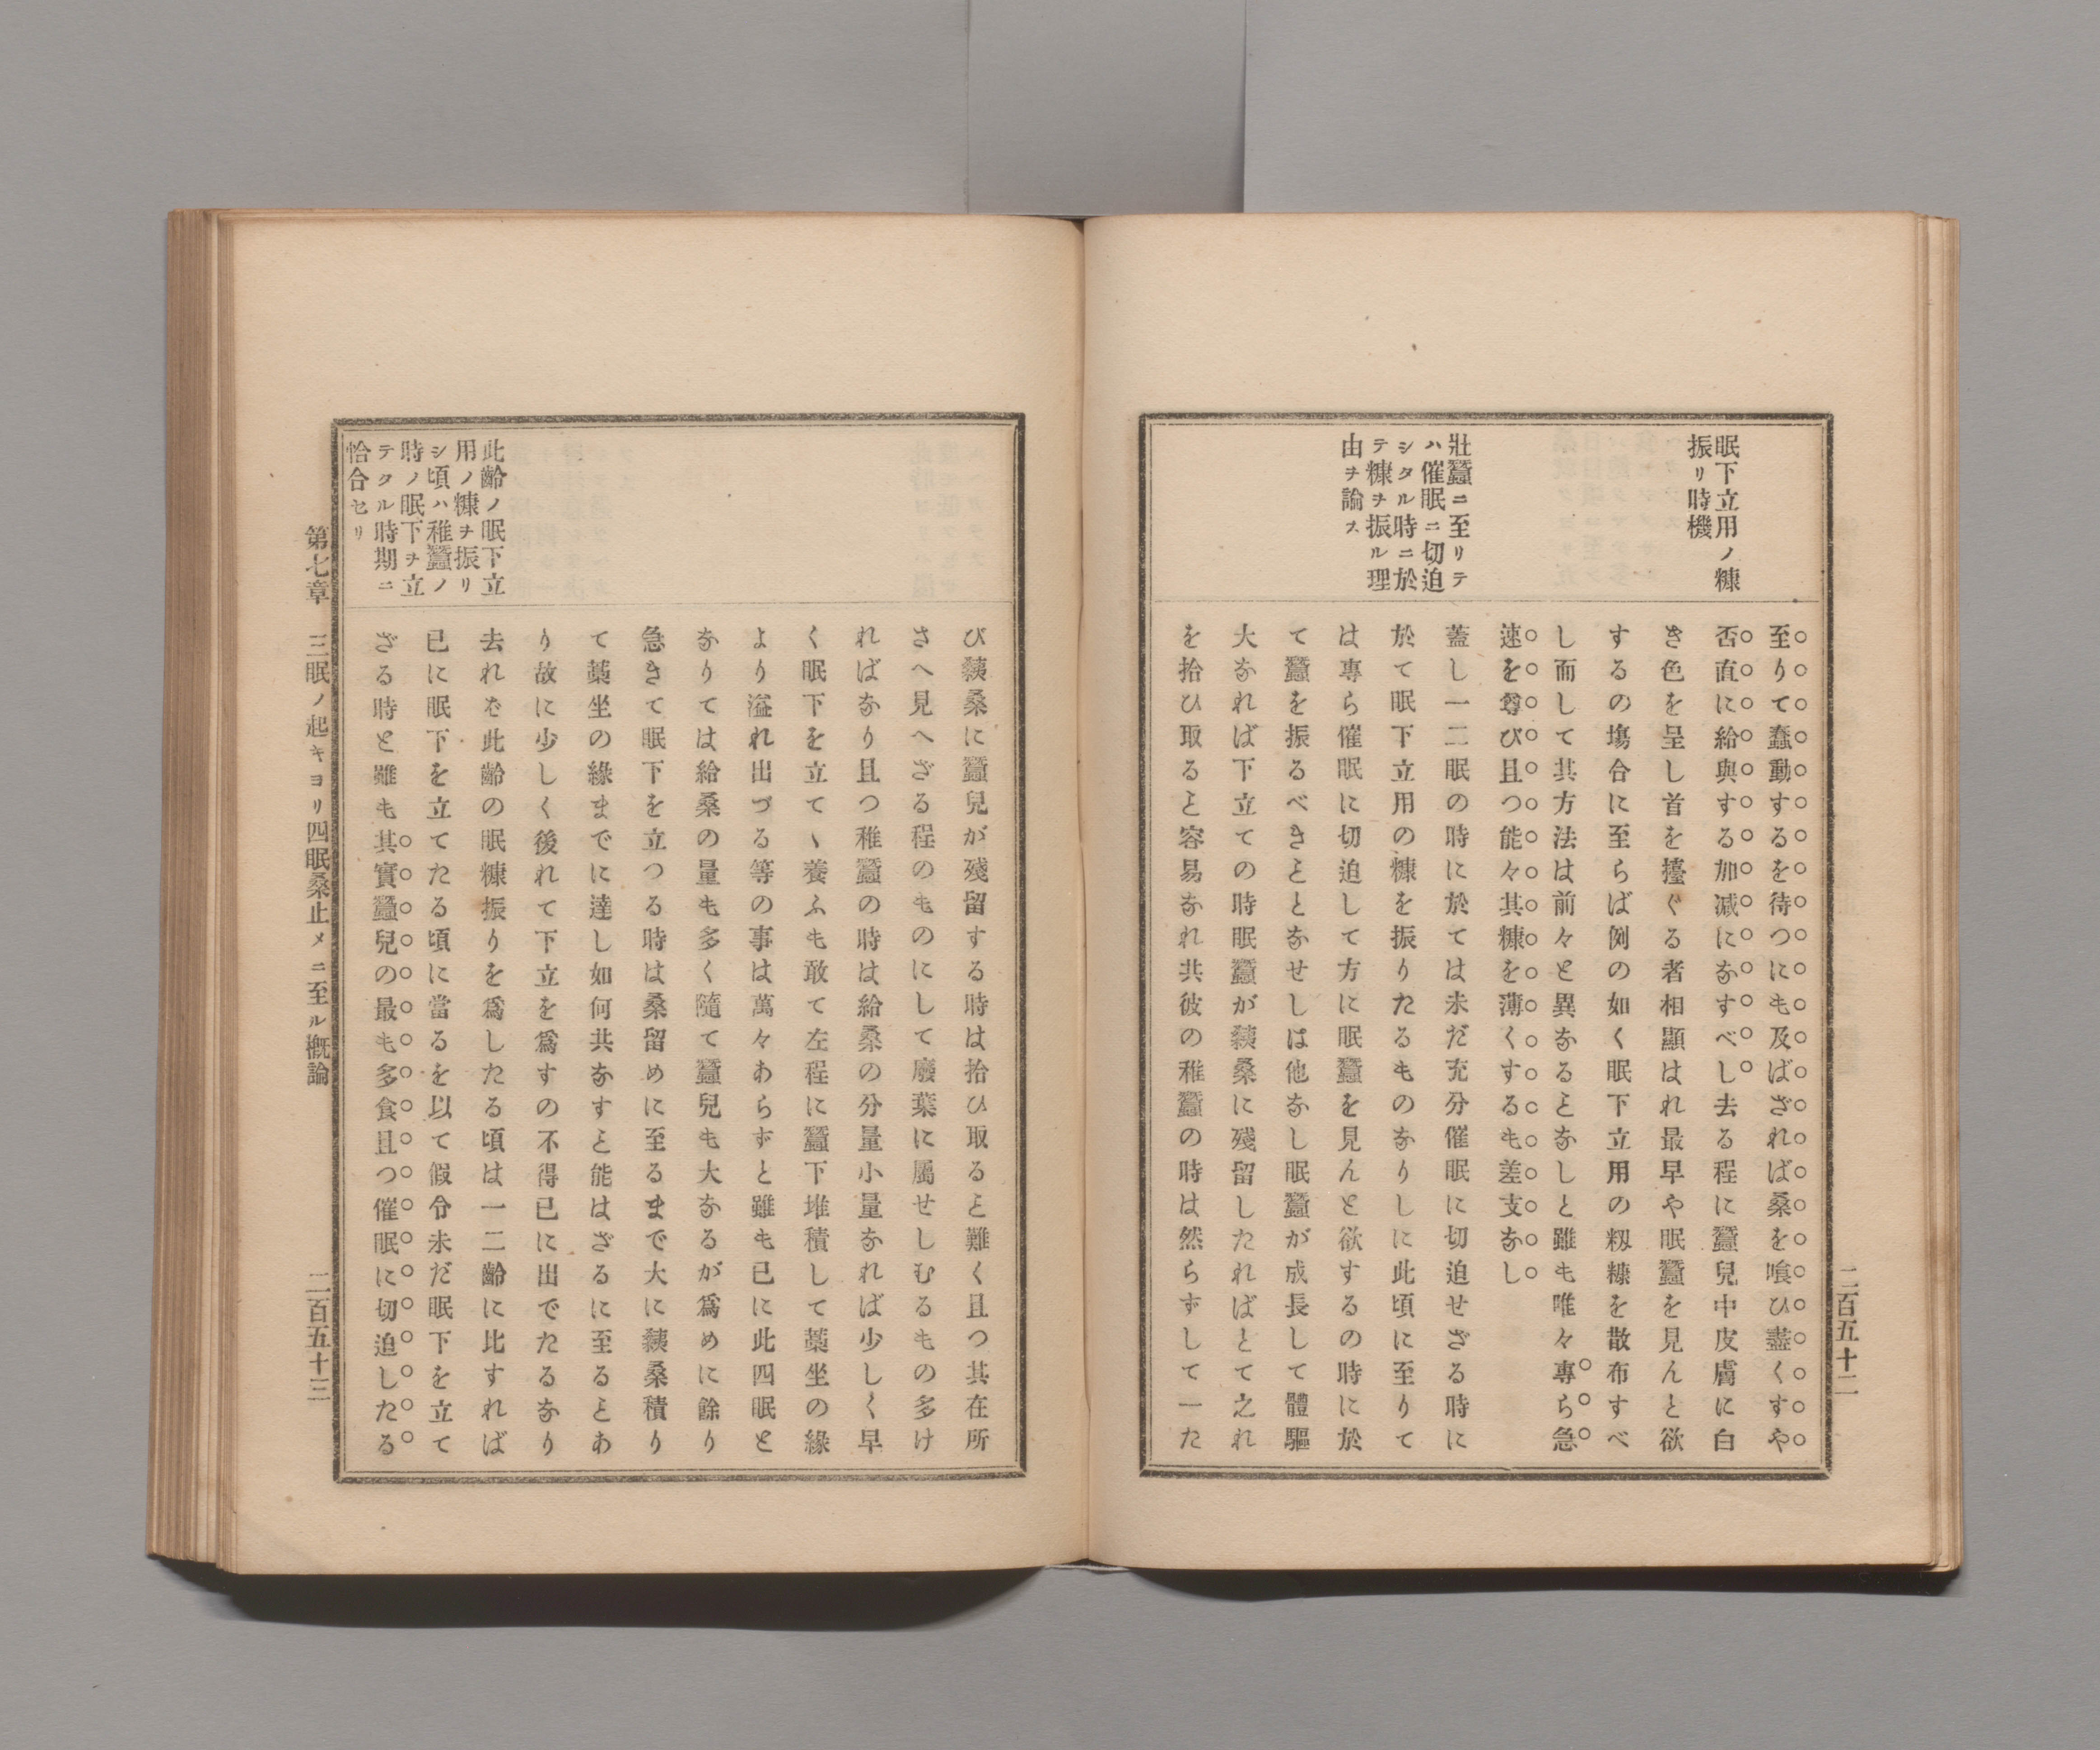 二百五十二
眠下立用ノ糠
振リ時機
壯蠶ニ至リテ
ハ催眠ニ切迫
シタル時ニ於
テ糠ヲ振ル理
由ヲ論ス
至りて蠢動するを待つにも及ばざれば桑を喰ひ盡くすや
否直に給與する加減になすべし去る程に蠶兒中皮膚に白
き色を呈し首を擡ぐる者相顯はれ最早や眠蠶を見んと欲
するの塲合に至らば例の如く眠下立用の籾糠を散布すべ
し而して其方法は前々と異なるとなしと雖も唯々專ら急
速を尊び且つ能々其糠を薄くするも差支なし
蓋し一二眠の時に於ては未だ充分催眠に切迫せざる時に
於て眠下立用の糠を振りたるものなりしに此頃に至りて
は專ら催眠に切迫して方に眠蠶を見んと欲するの時に於
て蠶を振るべきとゝなせしは他なし眠蠶が成長して體軀
大なれば下立ての時眠蠶が桑に殘留したればとて之れ
を拾ひ取ると容易なれ共彼の稚蠶の時は然らずして一た
び桑に蠶兒が殘留する時は拾ひ取ると難く且つ其在所
さへ見へざる程のものにして廢葉に屬せしむるもの多け
ればなり且つ稚蠶の時は給桑の分量小量なれば少しく早
く眠下を立てゝ養ふも敢て左程に蠶下堆積して藁坐の緣
より溢れ出づる等の事は萬々あらずと雖も已に此四眠と
なりては給桑の量も多く隨て蠶兒も大なるが爲めに餘り
急きて眠下を立つる時は桑留めに至るまで大に桑積り
て藁坐の緣までに達し如何共なすと能はざるに至るとあ
り故に少しく後れて下立を爲すの不得已に出でたるなり
去れは此齡の眠糠振りを爲したる頃は一二齡に比すれば
已に眠下を立てたる頃に當るを以て假令未だ眠下を立て
ざる時と雖も其實蠶兒の最も多食且つ催眠に切迫したる
此齡ノ眠下立
用ノ糠ヲ振リ
シ頃ハ稚蠶ノ
時ノ眠下ヲ立
テタル時期ニ
恰合セリ
第七章 三眠ノ起キヨリ四眠桑止メニ至ル槪論
二百五十三